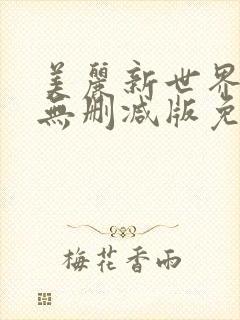 美麗新世界
無删减版免
梅花香雨